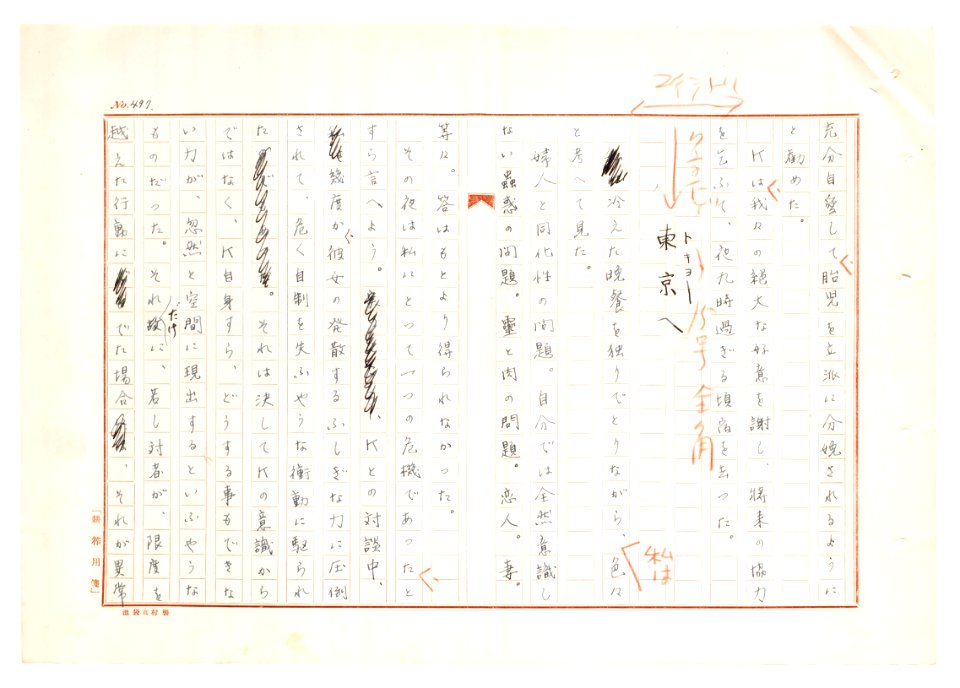 No. 497.
充分自愛して胎児を立派に分娩されるように
と勧めた。
Kは我々の絶大な好意を謝し、将来の協力
を乞ふて、夜九時過ぎる頃宿を去つた。
15号全角
東京へ
トキョー
冷えた晩餐を独りでとりながら、色々
私は
と考へて見た。
婦人と同化性の問題。自分では全然意識し
ない蟲惑の問題。靈と肉の問題。恋人。妻。
等々。答はもとより得られなかつた。
その夜は私にとつて一つの危機であつたと
すら言へよう。Kとの対談中、
幾度か彼女の発散するふしぎな力に圧倒
されて、危く自制を失ふやうな衝動に駆られ
た。それは決してKの意識から
ではなく、K自身すら、どうする事もできな
い力が、忽然と空間に現出するといふやうな
ものだつた。それ故に、若し対者が、限度を
だけ
越えた行動にでた場合、それが異常
「新稀用箋」